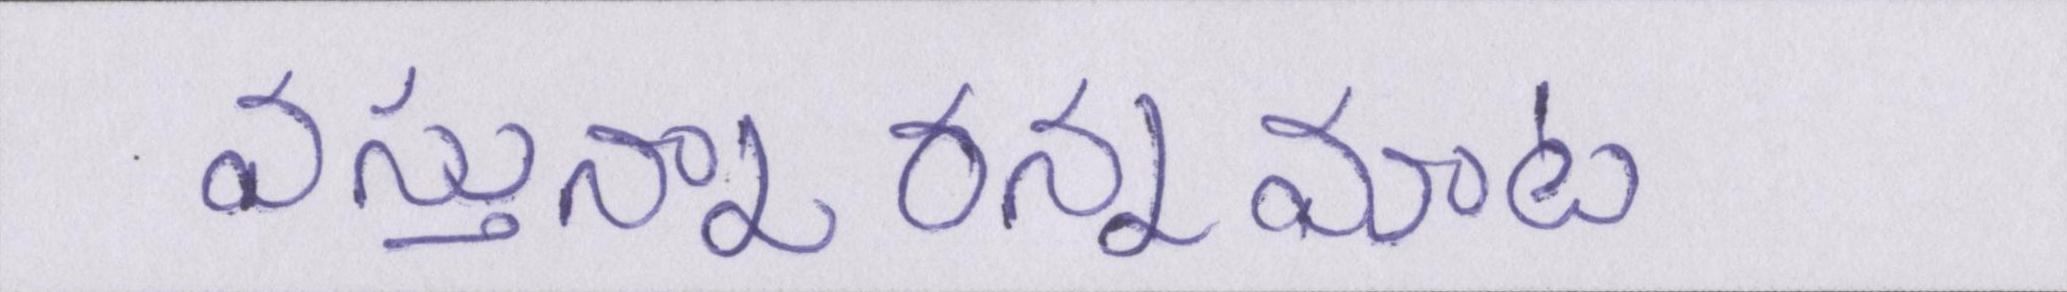 వస్తున్నారన్నమాట